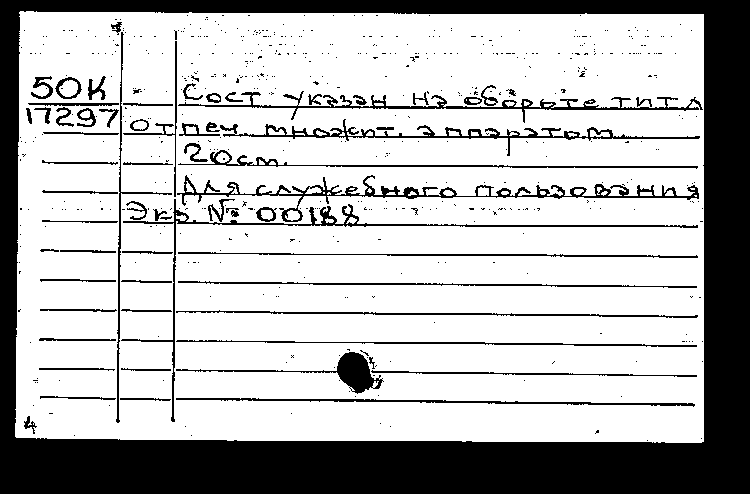 50К
17297
Сост указан на обороте тит л
отпеч. множит. аппаратом.
20см.
Для служебного пользования
Экз. № 00188
4